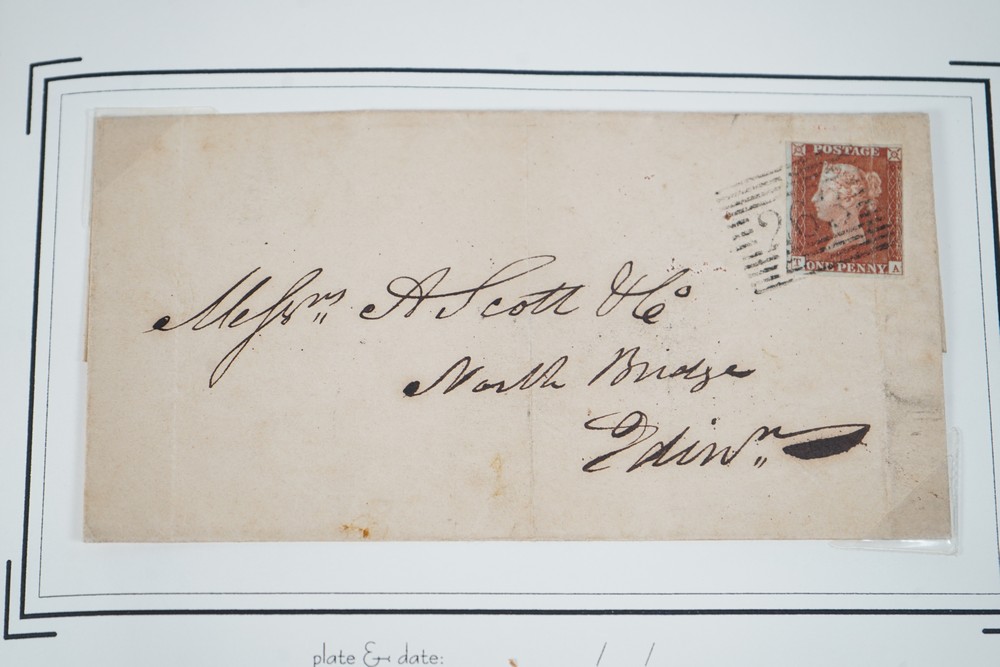 POSTAGE
T ONE PENNY A
Messrs A Scott & Co
North Bridge
Edinr
plate & date: / /